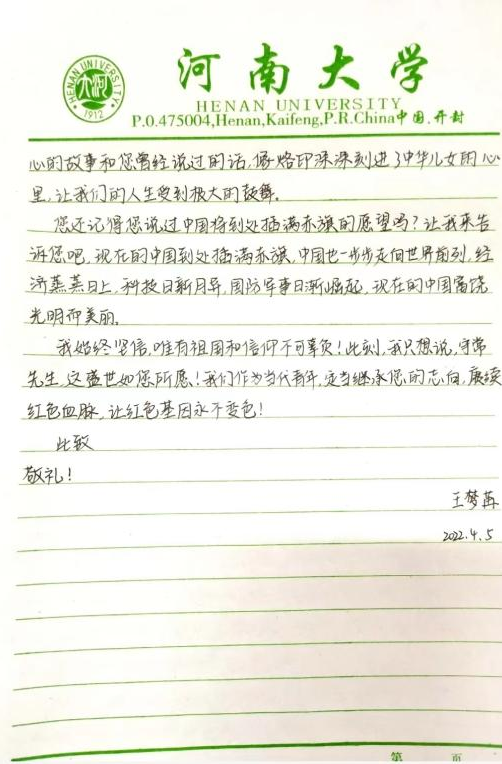 HENAN UNIVERSITY
大河
1912
河南大学
HENAN UNIVERSITY
P.O.475004,Henan,Kaifeng,P.R.China中国.开封
心的故事和您曾经说过的话,像烙印深深刻进了中华儿女的心
里,让我们的人生受到极大的鼓舞。
您还记得您说过中国将到处插满赤旗的愿望吗?让我来告
诉您吧,现在的中国到处插满赤旗,中国也一步步走向世界前列,经
济蒸蒸日上,科技日新月异,国防军事日渐崛起,现在的中国富饶
光明而美丽。
我始终坚信,唯有祖国和信仰不可辜负!此刻,我只想说,守常
先生,这盛世如您所愿!我们作为当代青年,定当继承您的志向,赓续
红色血脉,让红色基因永不变色!
此致
敬礼!
王梦苒
2022.4.5
第 页